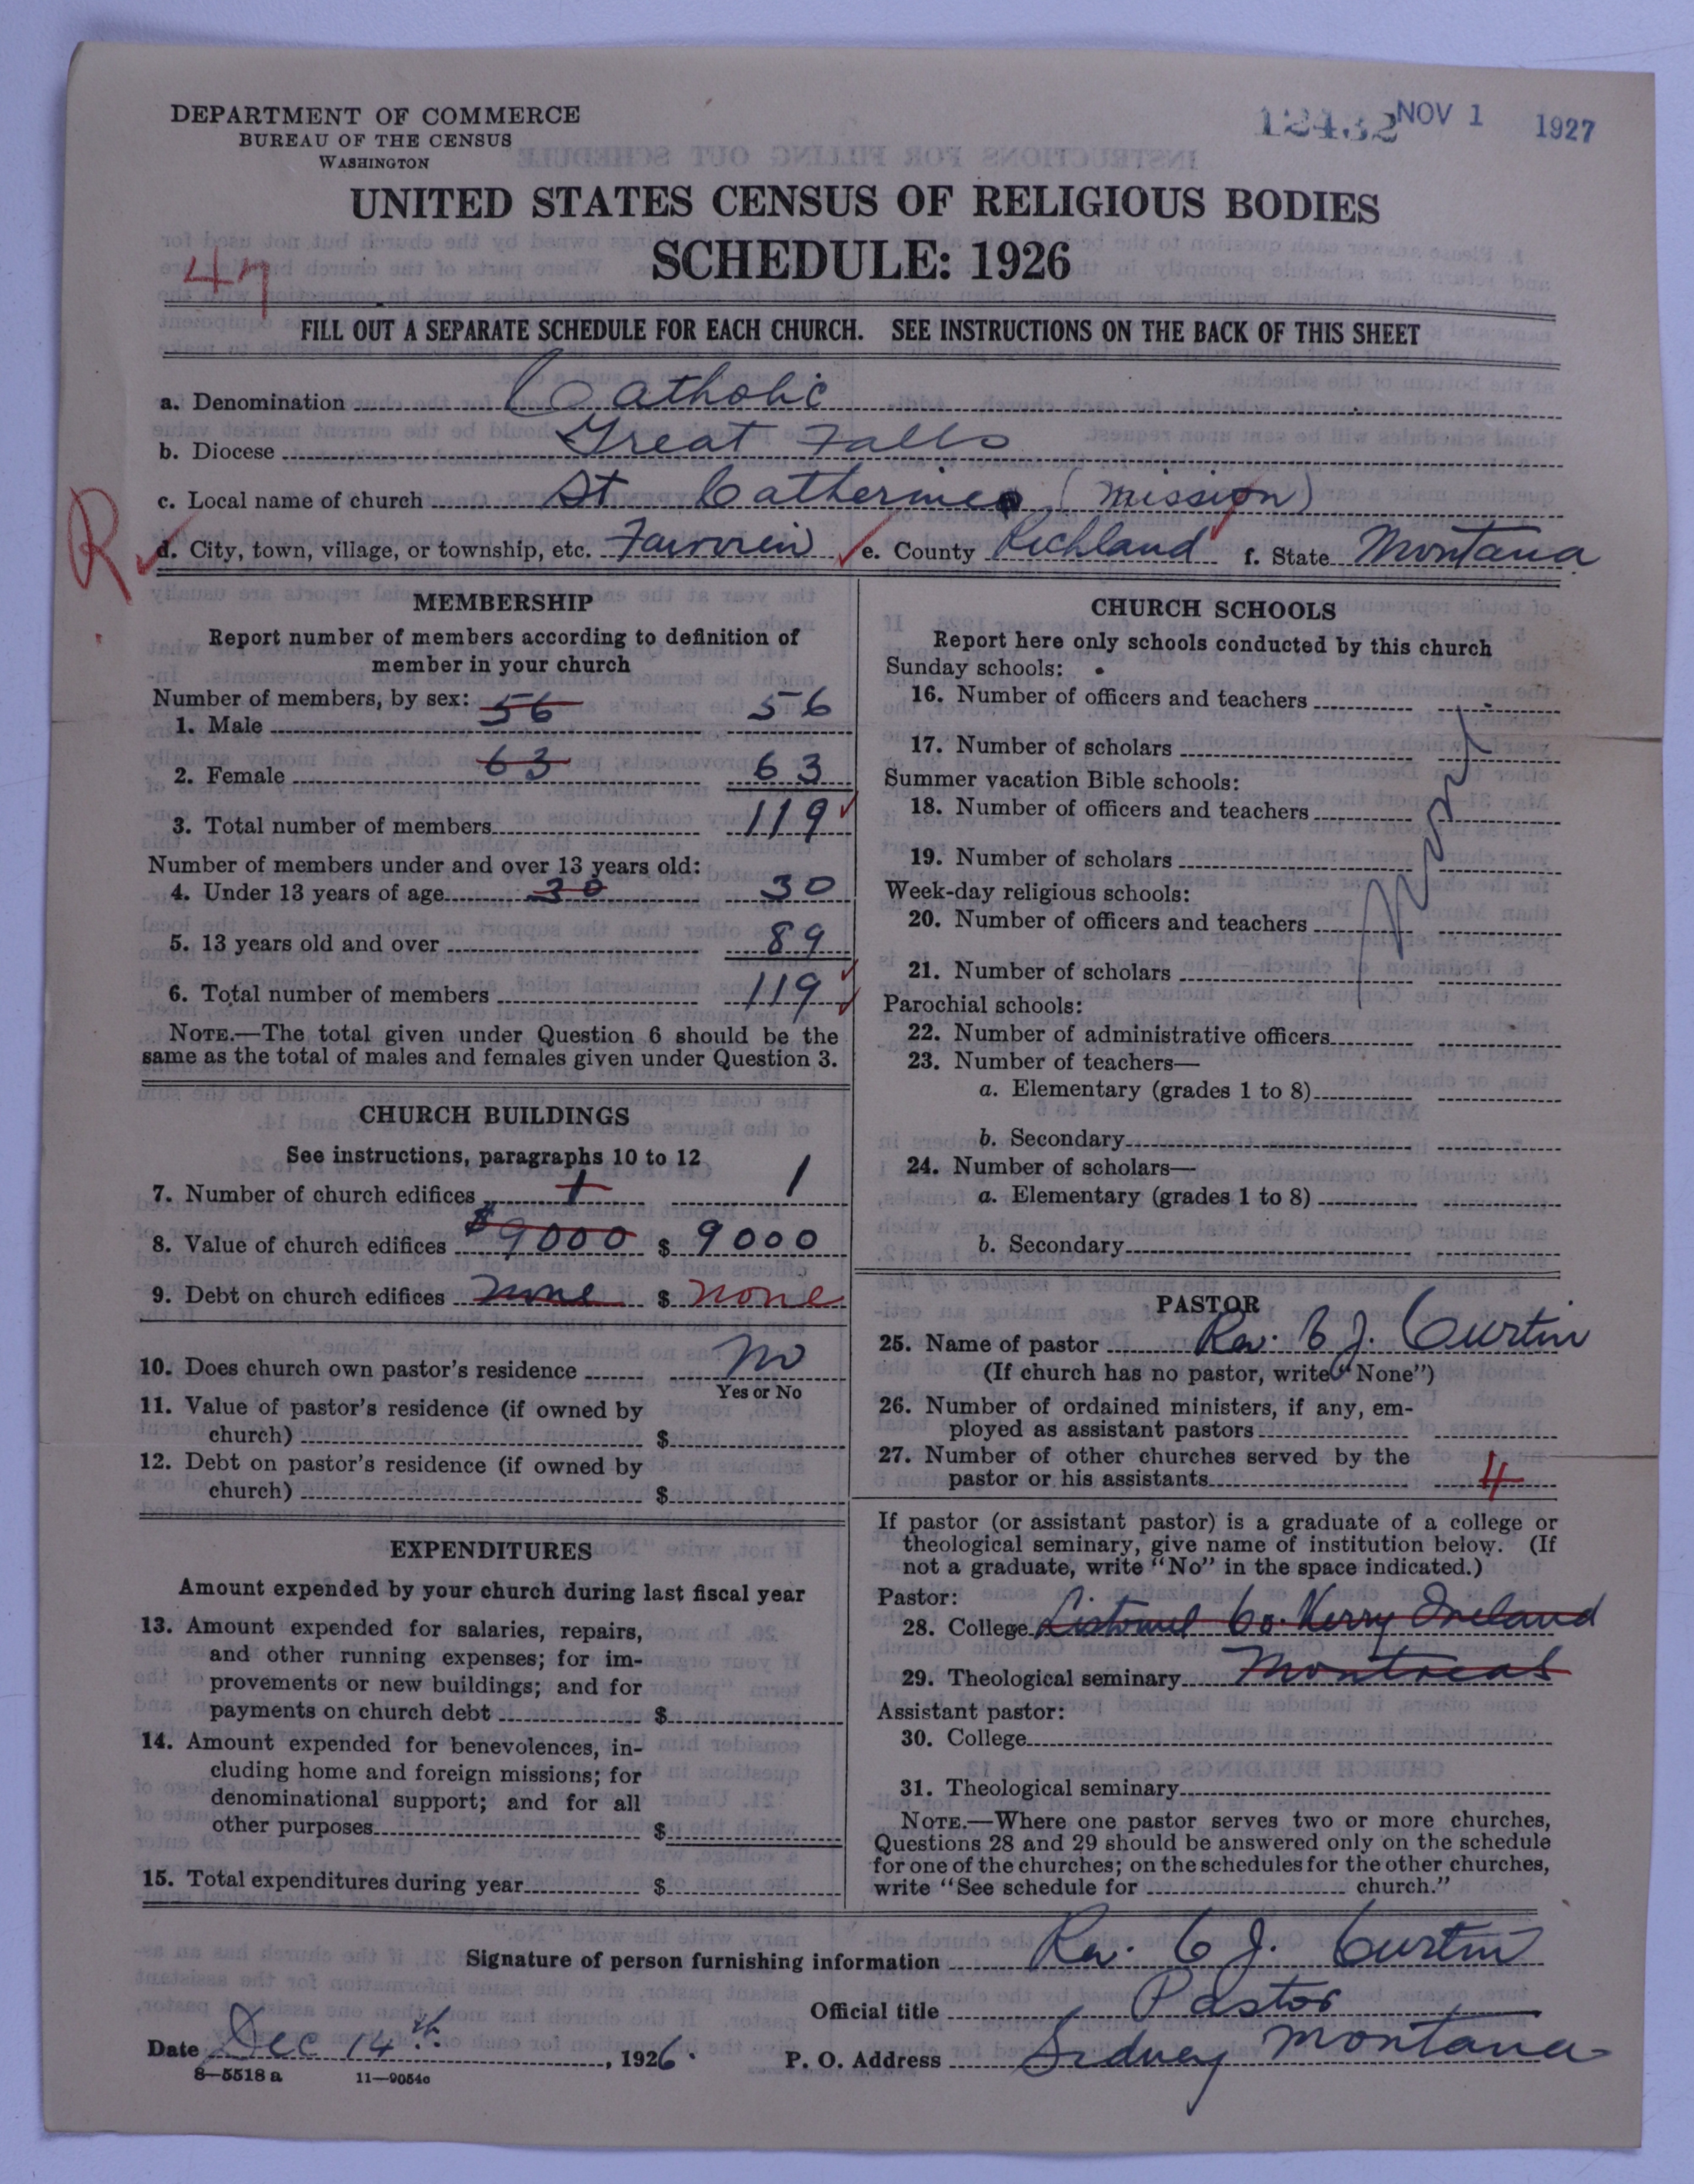 DEPARTMENT OF COMMERCE
BUREAU OF THE CENSUS
WASHINGTON
12432 NOV 1 1927
UNITED STATES CENSUS OF RELIGIOUS BODIES
SCHEDULE: 1926
47
FILL OUT A SEPARATE SCHEDULE FOR EACH CHURCH. SEE INSTRUCTIONS ON THE BACK OF THIS SHEET
a. Denomination Catholic
b. Diocese Great Falls
c. Local name of church St Catherines (mission)
R
d. City, town, village, or township, etc. Fairview e. County Richland f. State Montana
MEMBERSHIP
Report number of members according to definition of
member in your church
Number of members, by sex:
1. Male 56 56
2. Female 63 63
3. Total number of members 119
Number of members under and over 13 years old:
4. Under 13 years of age 30 30
5. 13 years old and over 89
6. Total number of members 119
NOTE.—The total given under Question 6 should be the
same as the total of males and females given under Question 3.
CHURCH BUILDINGS
See instructions, paragraphs 10 to 12
7. Number of church edifices 1 1
8. Value of church edifices $9000 $ 9000
9. Debt on church edifices none $ none
10. Does church own pastor's residence no
Yes or No
11. Value of pastor's residence (if owned by
church) $
12. Debt on pastor's residence (if owned by
church) $
EXPENDITURES
Amount expended by your church during last fiscal year
13. Amount expended for salaries, repairs,
and other running expenses; for im-
provements or new buildings; and for
payments on church debt $
14. Amount expended for benevolences, in-
cluding home and foreign missions; for
denominational support; and for all
other purposes $
15. Total expenditures during year $
CHURCH SCHOOLS
Report here only schools conducted by this church
Sunday schools:
16. Number of officers and teachers
17. Number of scholars
Summer vacation Bible schools:
18. Number of officers and teachers
19. Number of scholars
Week-day religious schools:
20. Number of officers and teachers
21. Number of scholars
Parochial schools:
22. Number of administrative officers
23. Number of teachers—
a. Elementary (grades 1 to 8)
b. Secondary
24. Number of scholars—
a. Elementary (grades 1 to 8)
b. Secondary
PASTOR
25. Name of pastor Rev. C J. Curtin
(If church has no pastor, write "None")
26. Number of ordained ministers, if any, em-
ployed as assistant pastors
27. Number of other churches served by the
pastor or his assistants 4
If pastor (or assistant pastor) is a graduate of a college or
theological seminary, give name of institution below. (If
not a graduate, write "No" in the space indicated.)
Pastor:
28. College Listowel Co. Kerry Ireland
29. Theological seminary Montreal
Assistant pastor:
30. College
31. Theological seminary
NOTE.—Where one pastor serves two or more churches,
Questions 28 and 29 should be answered only on the schedule
for one of the churches; on the schedules for the other churches,
write "See schedule for church."
Signature of person furnishing information Rev. C J. Curtin
Official title Pastor
Date Dec 14th, 1926. P. O. Address Sidney Montana
8—5518 a 11—9054c